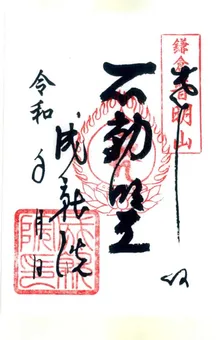 鎌倉普明山
奉拝
不動明王
成就院
令和 年 月 日